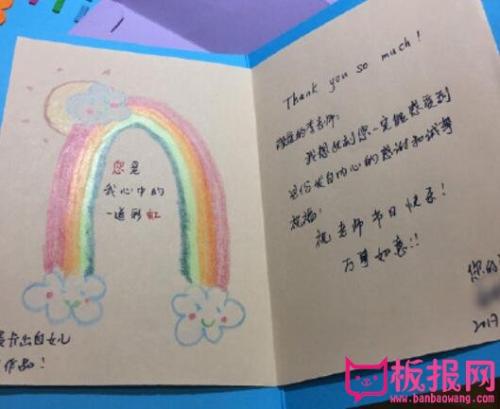 您是
我心中的
一道彩虹
卡出自女儿
作品！
Thank you so much!
亲爱的李老师：
我想此刻您一定能感受到
这份发自内心的感谢和诚挚
祝福：
祝老师节日快乐！
万事如意!!
您的
2017
板报网
www.banbaowang.com